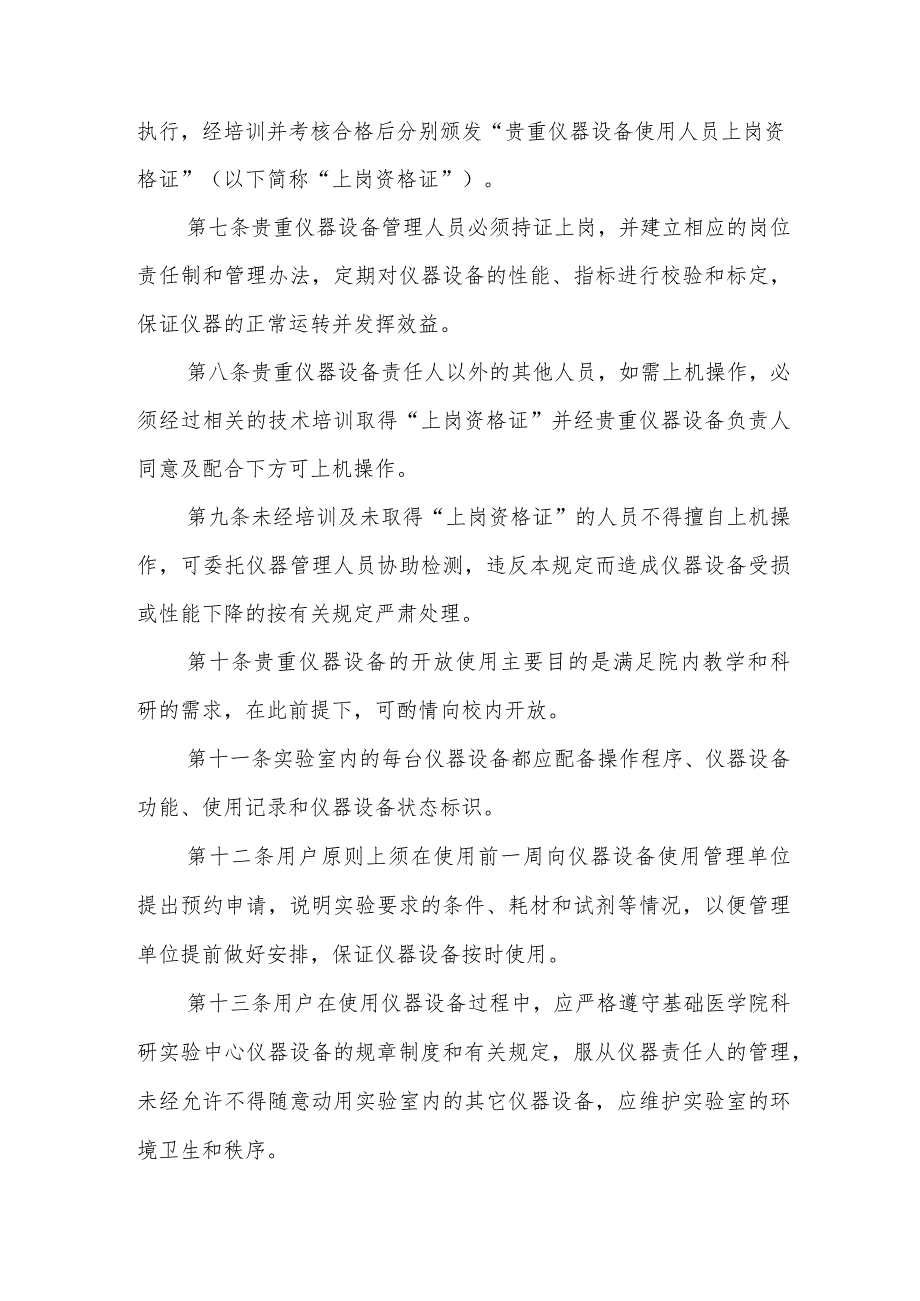 执行，经培训并考核合格后分别颁发“贵重仪器设备使用人员上岗资
格证”（以下简称“上岗资格证”）。
第七条贵重仪器设备管理人员必须持证上岗，并建立相应的岗位
责任制和管理办法，定期对仪器设备的性能、指标进行校验和标定，
保证仪器的正常运转并发挥效益。
第八条贵重仪器设备责任人以外的其他人员，如需上机操作，必
须经过相关的技术培训取得“上岗资格证”并经贵重仪器设备负责人
同意及配合下方可上机操作。
第九条未经培训及未取得“上岗资格证”的人员不得擅自上机操
作，可委托仪器管理人员协助检测，违反本规定而造成仪器设备受损
或性能下降的按有关规定严肃处理。
第十条贵重仪器设备的开放使用主要目的是满足院内教学和科
研的需求，在此前提下，可酌情向校内开放。
第十一条实验室内的每台仪器设备都应配备操作程序、仪器设备
功能、使用记录和仪器设备状态标识。
第十二条用户原则上须在使用前一周向仪器设备使用管理单位
提出预约申请，说明实验要求的条件、耗材和试剂等情况，以便管理
单位提前做好安排，保证仪器设备按时使用。
第十三条用户在使用仪器设备过程中，应严格遵守基础医学院科
研实验中心仪器设备的规章制度和有关规定，服从仪器责任人的管理，
未经允许不得随意动用实验室内的其它仪器设备，应维护实验室的环
境卫生和秩序。